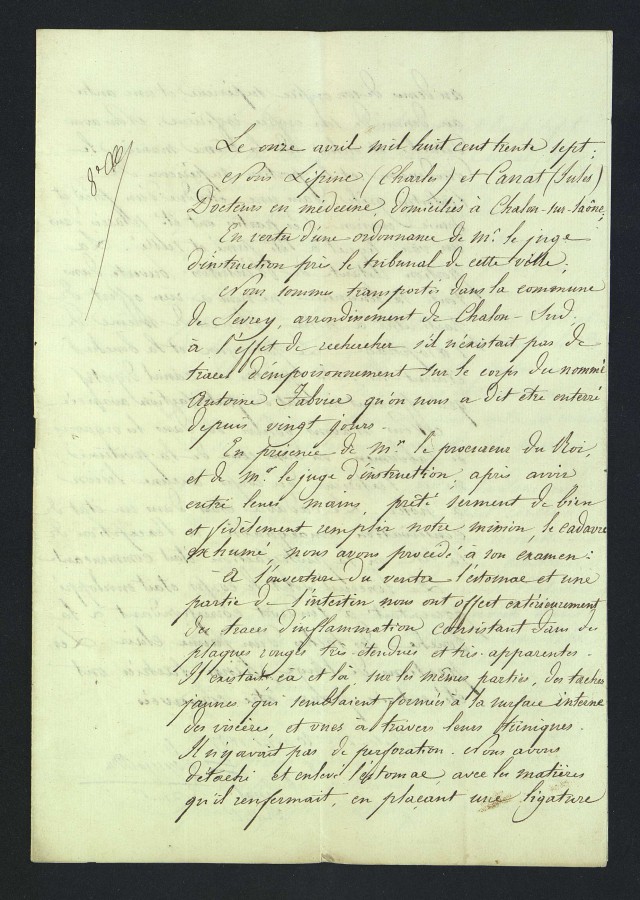 Le onze avril mil huit cent trente sept,
Nous Lépine (Charles) et Canat (Jules)
Docteurs en médecine, domiciliés à Chalon-sur-Saône;
En vertu d'une ordonnance de Mr. le juge
d'instruction près le tribunal de cette ville,
Nous sommes transportés dans la commune
de Sevrey, arrondissement de Chalon-Sud,
à l'effet de rechercher s'il n'existait pas de
traces d'empoisonnement sur le corps du nommé
Antoine Fabvier qu'on nous a dit être enterré
depuis vingt jours.
En présence de Mr. le procureur du Roi,
et de Mr. le juge d'instruction, après avoir
entre leurs mains prêté serment de bien
et fidèlement remplir notre mission, le cadavre
exhumé, nous avons procédé à son examen:
A l'ouverture du ventre l'estomac et une
partie de l'intestin nous ont offert extérieurement
des traces d'inflammation consistant dans des
plaques rouges très-étendues et très-apparentes.
Il existait çà et là, sur les mêmes parties, des taches
jaunes qui semblaient formées à la surface interne
des viscères, et vues à travers leurs tuniques.
Il n'y avait pas de perforation. Nous avons
détaché et enlevé l'estomac avec les matières
qu'il renfermait, en plaçant une ligature